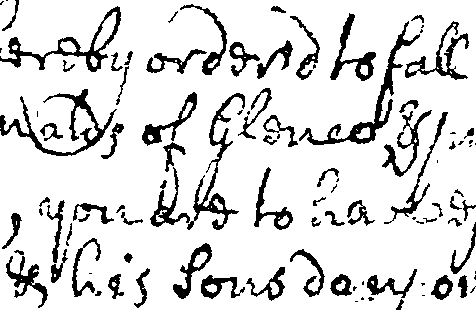 ereby order'd to fall
nalds of Glenco, &
, you are to have
& his Sons